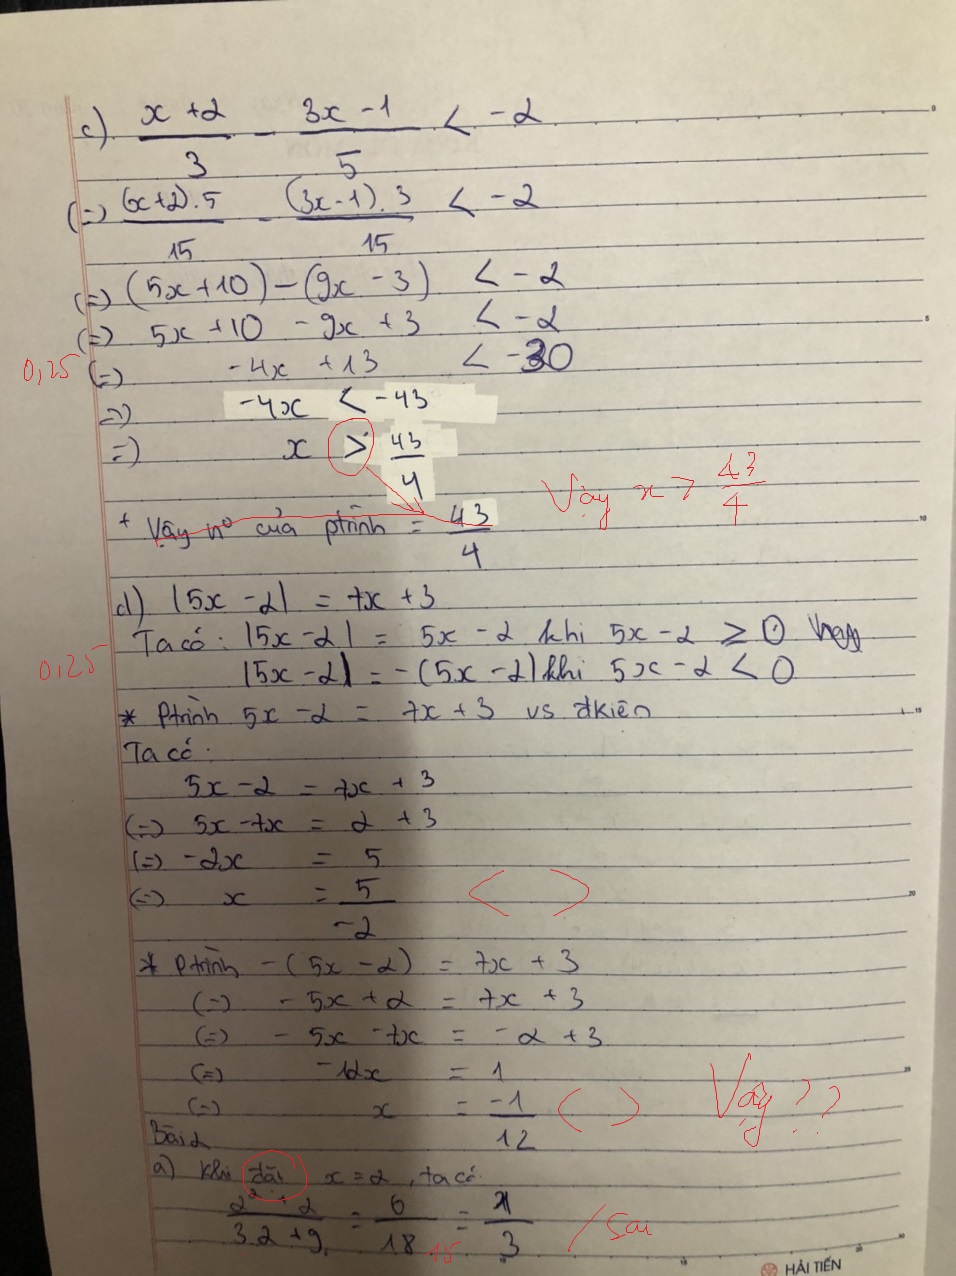 c) (x+2)/3 - (3x-1)/5 < -2
(=) (x+2).5/15 - (3x-1).3/15 < -2
(=) (5x+10)-(9x-3) < -2
(=) 5x+10 - 9x+3 < -2
0,25 (=) -4x +13 < -30
=) -4x < -43
=) x > 43/4
Vậy x > 43/4
+ Vậy nº của ptrình = 43/4
d) |5x-2| = 7x+3
Ta có: |5x-2| = 5x-2 khi 5x-2 ≥ 0
0,25 |5x-2| = -(5x-2) khi 5x-2 < 0
* Ptrình 5x-2 = 7x+3 vs đkiên
Ta có:
5x-2 = 7x+3
(=) 5x-7x = 2+3
(=) -2x = 5
(=) x = 5/-2 < >
* Ptrình -(5x-2) = 7x+3
(=) -5x+2 = 7x+3
(=) -5x-7x = -2+3
(=) -12x = 1
(=) x = -1/12 < > Vậy ??
Bài 2
a) Khi x=2, ta có:
2²+2/3.2+9 = 6/18 = 1/3 / Sai
15
HẢI TIẾN